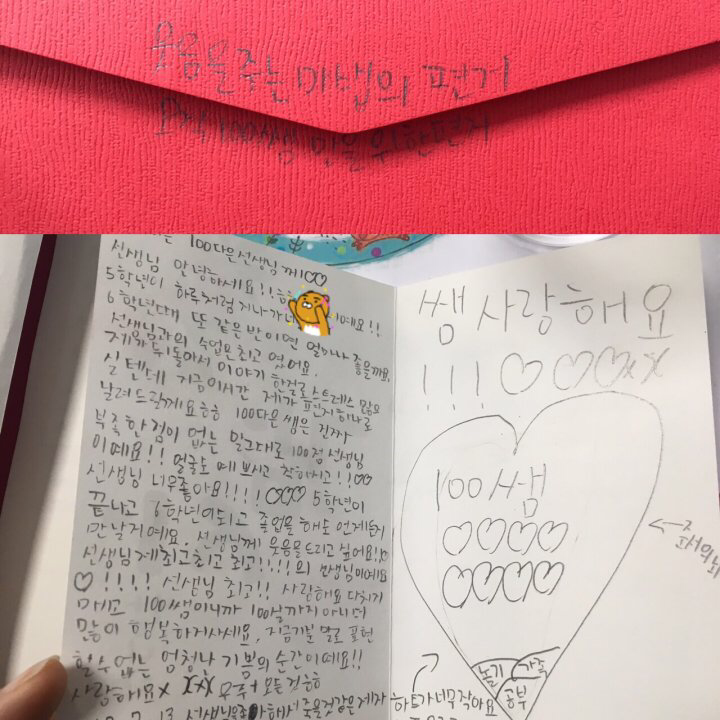 웃음을 주는 마법의 편지
100쌤만을 위한 편지
100다은선생님께!♡♡
선생님 안녕하세요!!
5학년이 하루처럼 지나가 예요!!
6학년때 또 같은 반이면 얼마나 좋을까요
선생님과의 수업은 최고 였어요.
제가 뒤돌아서 이야기 한걸로 스트레스 많으
실텐데 지금 이시간 제가 편지하나로
날려드릴께요 100다은 쌤은 진짜
부족한점이 없는 말그대로 100점 선생님
이예요!! 얼굴도 예쁘시고 착하시고!!♡♡
선생님 너무좋아요!!!!♡♡♡ 5학년이
끝나고 6학년이되고 졸업을 해도 언제든지
만날거예요. 선생님께 웃음을드리고 싶어요!!
선생님 제 최고 최고 최고!!!!의 선생님이예요
♡!!!! 선생님 최고!! 사랑해요 다치지
마시고 100쌤이니까 100살까지 아니 더
많이 행복하게사세요. 지금기분 말로 표현
할수 없는 엄청나 기쁨의 순간이예요!!
사랑해요
쌤 사랑해요
!!!♡♡♡xx
100쌤
♡♡♡♡
♡♡♡♡
놀기
가족
공부
하트가너무작아요